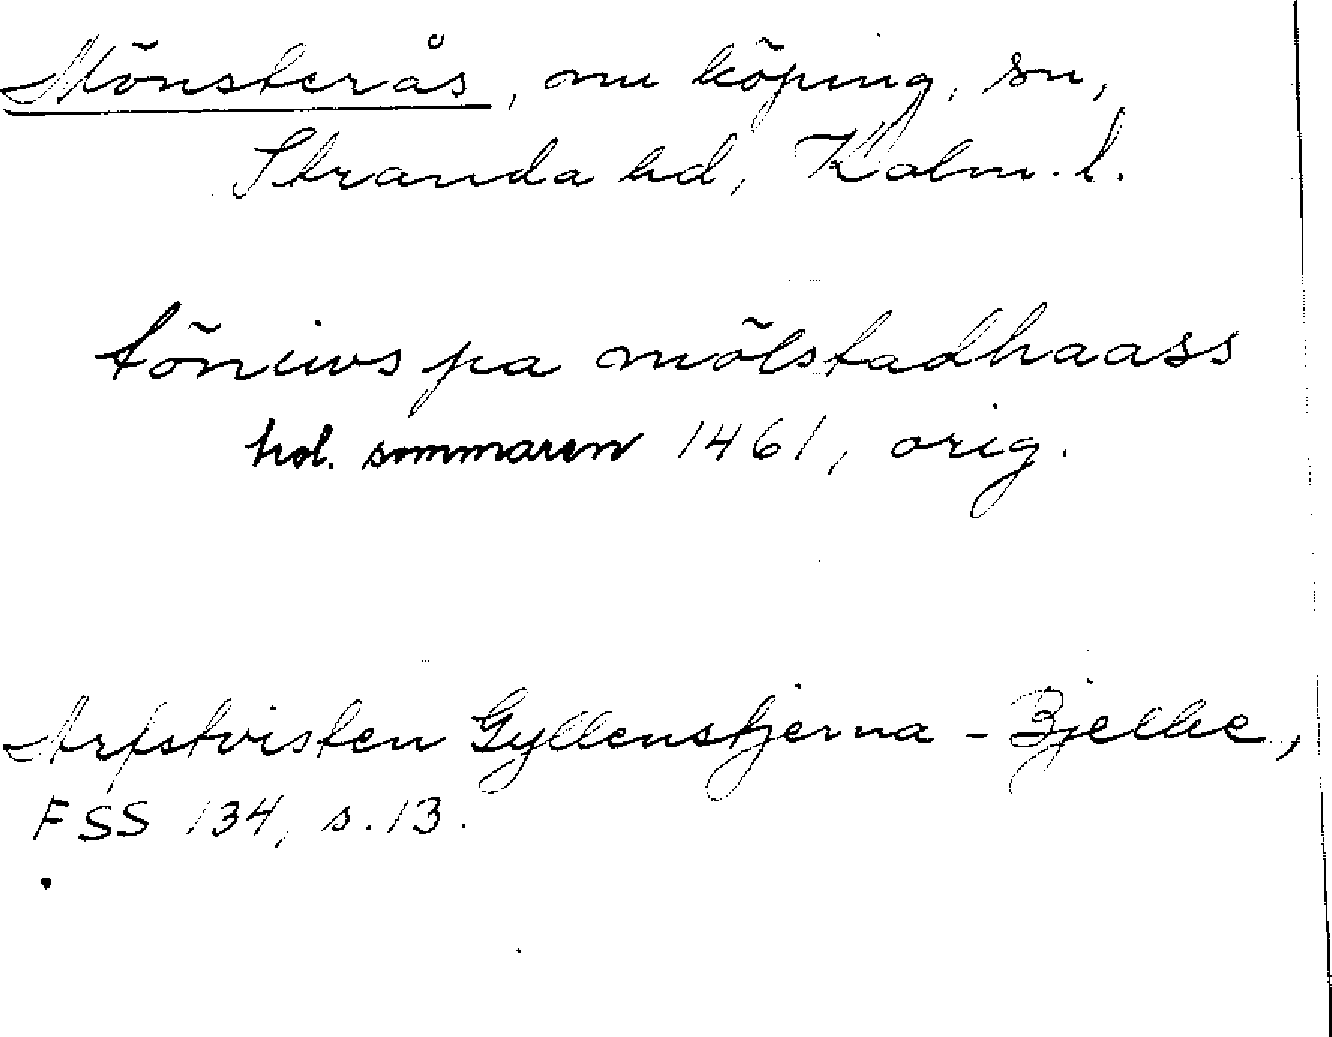 Mönsterås, nu köping, sn,
Stranda hd, Kalm. l.
töniws pa mölstadhaass
trol. sommaren 1461, orig.
Arfstvisten Gyllenstjerna - Bjelke,
FSS 134, s. 13.